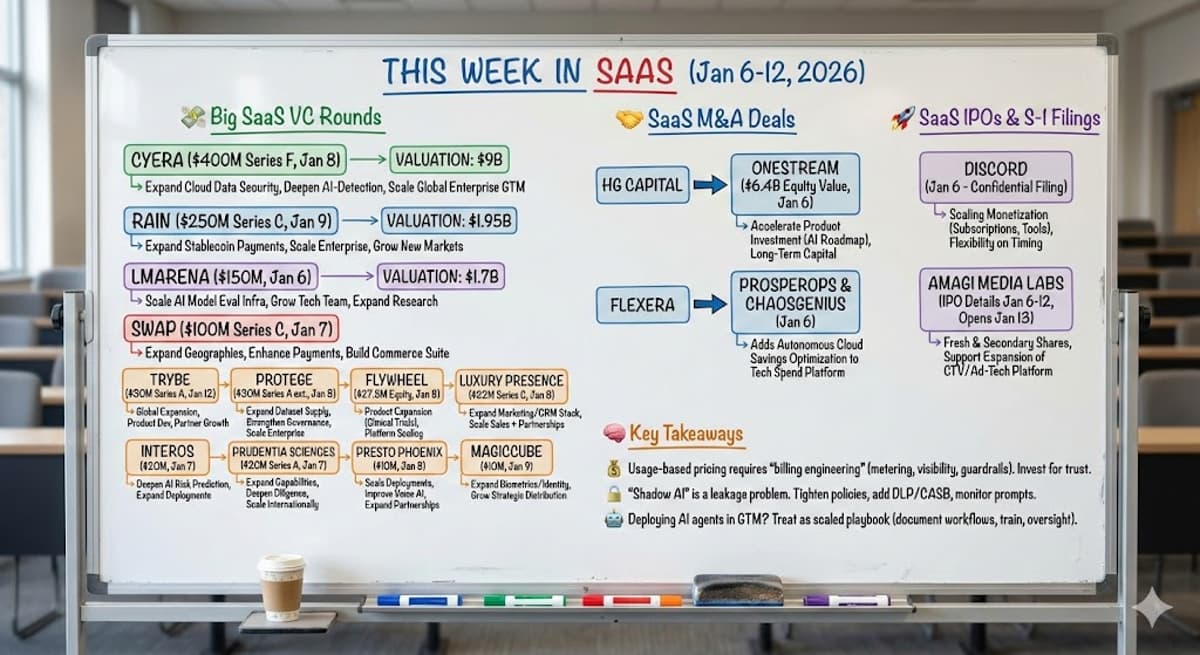 THIS WEEK IN SAAS (Jan 6-12, 2026)
Big SaaS VC Rounds
CYERA ($400M Series F, Jan 8)
VALUATION: $9B
Expand Cloud Data Security, Deepen AI-Detection, Scale Global Enterprise GTM
RAIN ($250M Series C, Jan 9)
VALUATION: $1.95B
Expand Stablecoin Payments, Scale Enterprise, Grow New Markets
LMARENA ($150M, Jan 6)
VALUATION: $1.7B
Scale AI Model Eval Infra, Grow Tech Team, Expand Research
SWAP ($100M Series C, Jan 7)
Expand Geographies, Enhance Payments, Build Commerce Suite
TRYBE
($30M Series A, Jan 12)
Global Expansion,
Product Dev, Partner Growth
PROTEGE
($30M Series A ext., Jan 8)
Expand Dataset Supply,
Governance,
Scale Enterprise
FLYWHEEL
($27.5M Equity, Jan 8)
Product Expansion
(Clinical Trials),
Platform
LUXURY PRESENCE
($22M Series C, Jan 8)
Expand Marketing/CRM Stack,
Scale Sales + Partnerships
INTEROS
($20M, Jan 7)
Deepen AI Risk Prediction,
Expand
PRUDENTIA SCIENCES
Series A, Jan 7)
Expand Capabilities,
Deepen Diligence,
Scale Internationally
PRESTO PHOENIX
($10M, Jan 8)
Deployments,
Improve Voice AI,
Expand Partnerships
MAGICCUBE
($10M, Jan 9)
Expand Biometrics/Identity,
Grow Strategic Distribution
SaaS M&A Deals
HG CAPITAL
ONESTREAM
($6.4B Equity Value,
Jan 6)
Accelerate Product
Investment (AI Roadmap),
Long-Term Capital
FLEXERA
PROSPEROPS &
CHAOSGENIUS
(Jan 6)
Adds Autonomous Cloud
Savings Optimization to
Tech Spend Platform
SaaS IPOs & S-1 Filings
DISCORD
(Jan 6 - Confidential Filing)
Scaling Monetization
(Subscriptions, Tools),
Flexibility on Timing
AMAGI MEDIA LABS
(IPO Details Jan 6-12,
Opens Jan 13)
Fresh & Secondary Shares,
Support Expansion of
CTV/Ad-Tech Platform
Key Takeaways
Usage-based pricing requires "billing engineering" (metering, visibility, guardrails). Invest for trust.
"Shadow AI" is a leakage problem. Tighten policies, add DLP/CASB, monitor prompts.
Deploying AI agents in GTM? Treat as scaled playbook (document workflows, train, oversight).